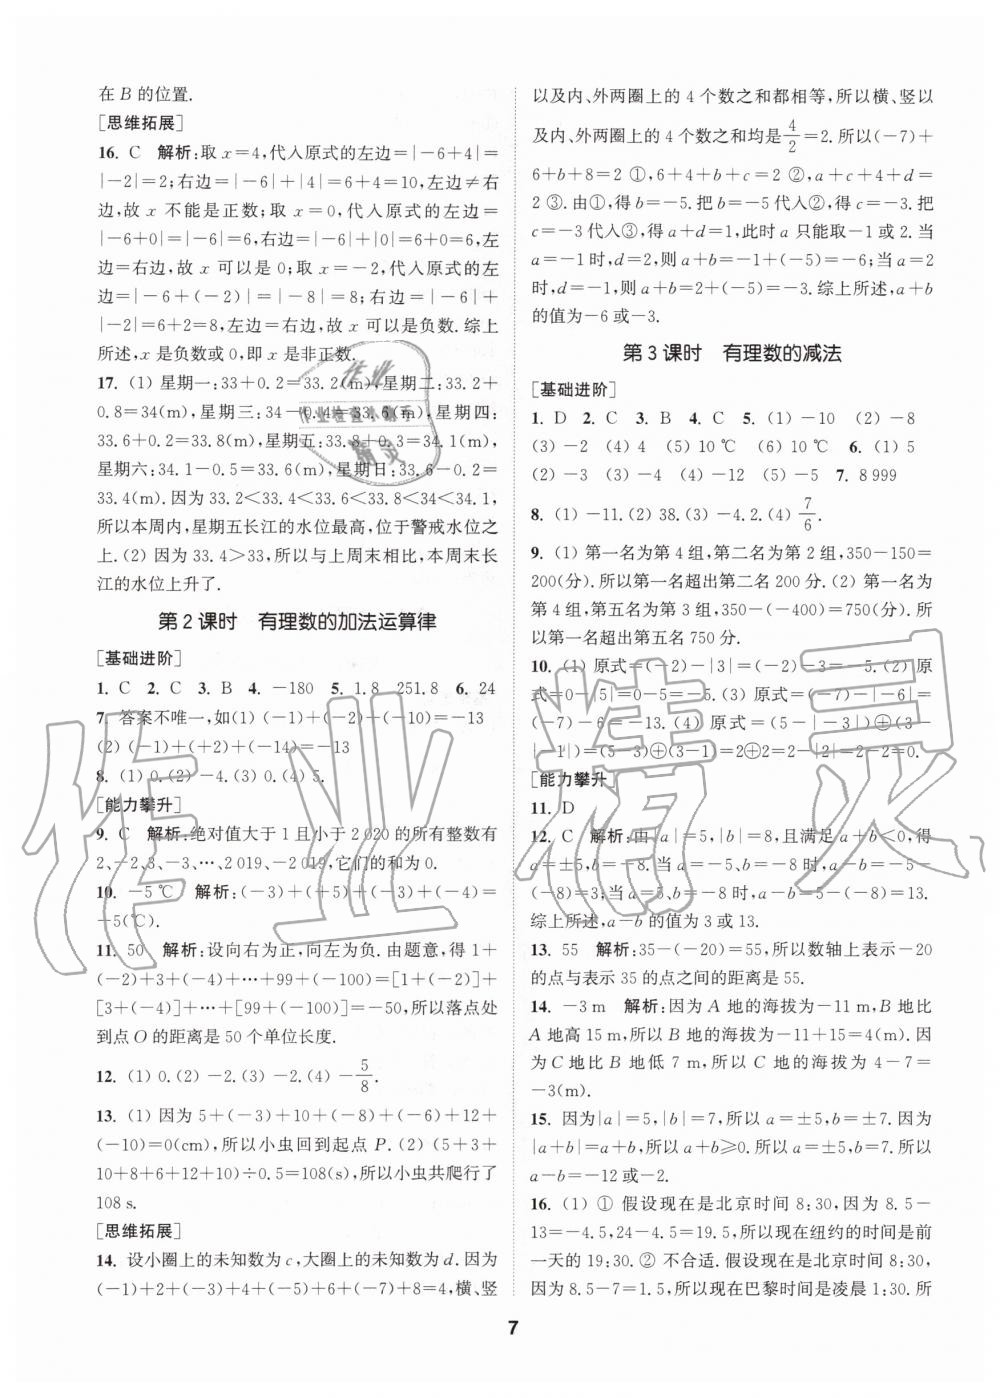 在 B 的位置.
[思维拓展]
16. C 解析:取 x=4,代入原式的左边=|-6+4|=
|-2|=2;右边=|-6|+|4|=6+4=10,左边≠右
边,故 x 不能是正数;取 x=0,代入原式的左边=
|-6+0|=|-6|=6;右边=|-6|+|0|=6+0=6,左
边=右边,故 x 可以是 0;取 x=-2,代入原式的左
边=|-6+(-2)|=|-8|=8;右边=|-6|+
|-2|=6+2=8,左边=右边,故 x 可以是负数.综上
所述,x 是负数或 0,即 x 是非正数.
17. (1) 星期一:33+0.2=33.2(m),星期二:33.2+
0.8=34(m),星期三:34-0.4=33.6(m),星期四:
33.6+0.2=33.8(m),星期五:33.8+0.3=34.1(m),
星期六:34.1-0.5=33.6(m),星期日:33.6-0.2=
33.4(m).因为 33.2<33.4<33.6<33.8<34<34.1,
所以本周内,星期五长江的水位最高,位于警戒水位之
上.(2) 因为 33.4>33,所以与上周末相比,本周末长
江的水位上升了.
第 2 课时 有理数的加法运算律
[基础进阶]
1. C 2. C 3. B 4. -180 5. 1.8 251.8 6. 24
7. 答案不唯一,如(1) (-1)+(-2)+(-10)=-13
(2) (-1)+(+2)+(-14)=-13
8. (1) 0.(2) -4.(3) 0.(4) 5.
[能力攀升]
9. C 解析:绝对值大于 1 且小于 2 020 的所有整数有
2、-2、3、-3、…、2 019、-2 019,它们的和为 0.
10. -5℃ 解析:(-3)+(+5)+(-3)+(-4)=
-5(℃).
11. 50 解析:设向右为正,向左为负.由题意,得 1+
(-2)+3+(-4)+…+99+(-100)=[1+(-2)]+
[3+(-4)]+…+[99+(-100)]=-50,所以落点处
到点 O 的距离是 50 个单位长度.
12. (1) 0.(2) -2.(3) -2.(4) -5/8.
13. (1) 因为 5+(-3)+10+(-8)+(-6)+12+
(-10)=0(cm),所以小虫回到起点 P.(2) (5+3+
10+8+6+12+10)÷0.5=108(s),所以小虫共爬行了
108 s.
[思维拓展]
14. 设小圈上的未知数为 c,大圈上的未知数为 d.因为
(-1)+2+(-3)+4+(-5)+6+(-7)+8=4,横、竖
以及内、外两圈上的 4 个数之和都相等,所以横、竖以
及内、外两圈上的 4 个数之和均是4/2=2.所以(-7)+
6+b+8=2 ①,6+4+b+c=2 ②,a+c+4+d=
2 ③.由①,得 b=-5.把 b=-5 代入②,得 c=-3.把
c=-3 代入③,得 a+d=1,此时 a 只能取-1 或 2.当
a=-1 时,d=2,则 a+b=-1+(-5)=-6;当 a=2
时,d=-1,则 a+b=2+(-5)=-3.综上所述,a+b
的值为-6 或-3.
第 3 课时 有理数的减法
[基础进阶]
1. D 2. C 3. B 4. C 5. (1) -10 (2) -8
(3) -2 (4) 4 (5) 10℃ (6) 10℃ 6. (1) 5
(2) -3 (3) -4 (4) -12 (5) -5 7. 8 999
8. (1) -11.(2) 38.(3) -4.2.(4) 7/6.
9. (1) 第一名为第 4 组,第二名为第 2 组,350-150=
200(分).所以第一名超出第二名 200 分.(2) 第一名为
第 4 组,第五名为第 3 组,350-(-400)=750(分).所
以第一名超出第五名 750 分.
10. (1) 原式=(-2)-|3|=(-2)-3=-5.(2) 原
式=0-|5|=0-5=-5.(3) 原式=(-7)-|-6|=
(-7)-6=-13.(4) 原式=(5-|-3|)⊕(3-
|-1|)=(5-3)⊕(3-1)=2⊕2=2-|2|=2-2=0.
[能力攀升]
11. D
12. C 解析:由|a|=5,|b|=8,且满足 a+b<0,得
a=±5,b=-8.当 a=-5、b=-8 时,a-b=-5-
(-8)=3;当 a=5、b=-8 时,a-b=5-(-8)=13.
综上所述,a-b 的值为 3 或 13.
13. 55 解析:35-(-20)=55,所以数轴上表示-20
的点与表示 35 的点之间的距离是 55.
14. -3 m 解析:因为 A 地的海拔为-11 m,B 地比
A 地高 15 m,所以 B 地的海拔为-11+15=4(m).因
为 C 地比 B 地低 7 m,所以 C 地的海拔为 4-7=
-3(m).
15. 因为|a|=5,|b|=7,所以 a=±5,b=±7.因为
|a+b|=a+b,所以 a+b≥0.所以 a=±5,b=7.所以
a-b=-12 或-2.
16. (1) ① 假设现在是北京时间 8:30,因为 8.5-
13=-4.5,24-4.5=19.5,所以现在纽约的时间是前
一天的 19:30.② 不合适.假设现在是北京时间 8:30,
因为 8.5-7=1.5,所以现在巴黎时间是凌晨 1:30.所
7
作业精灵
作业
作业检查小助手
精灵